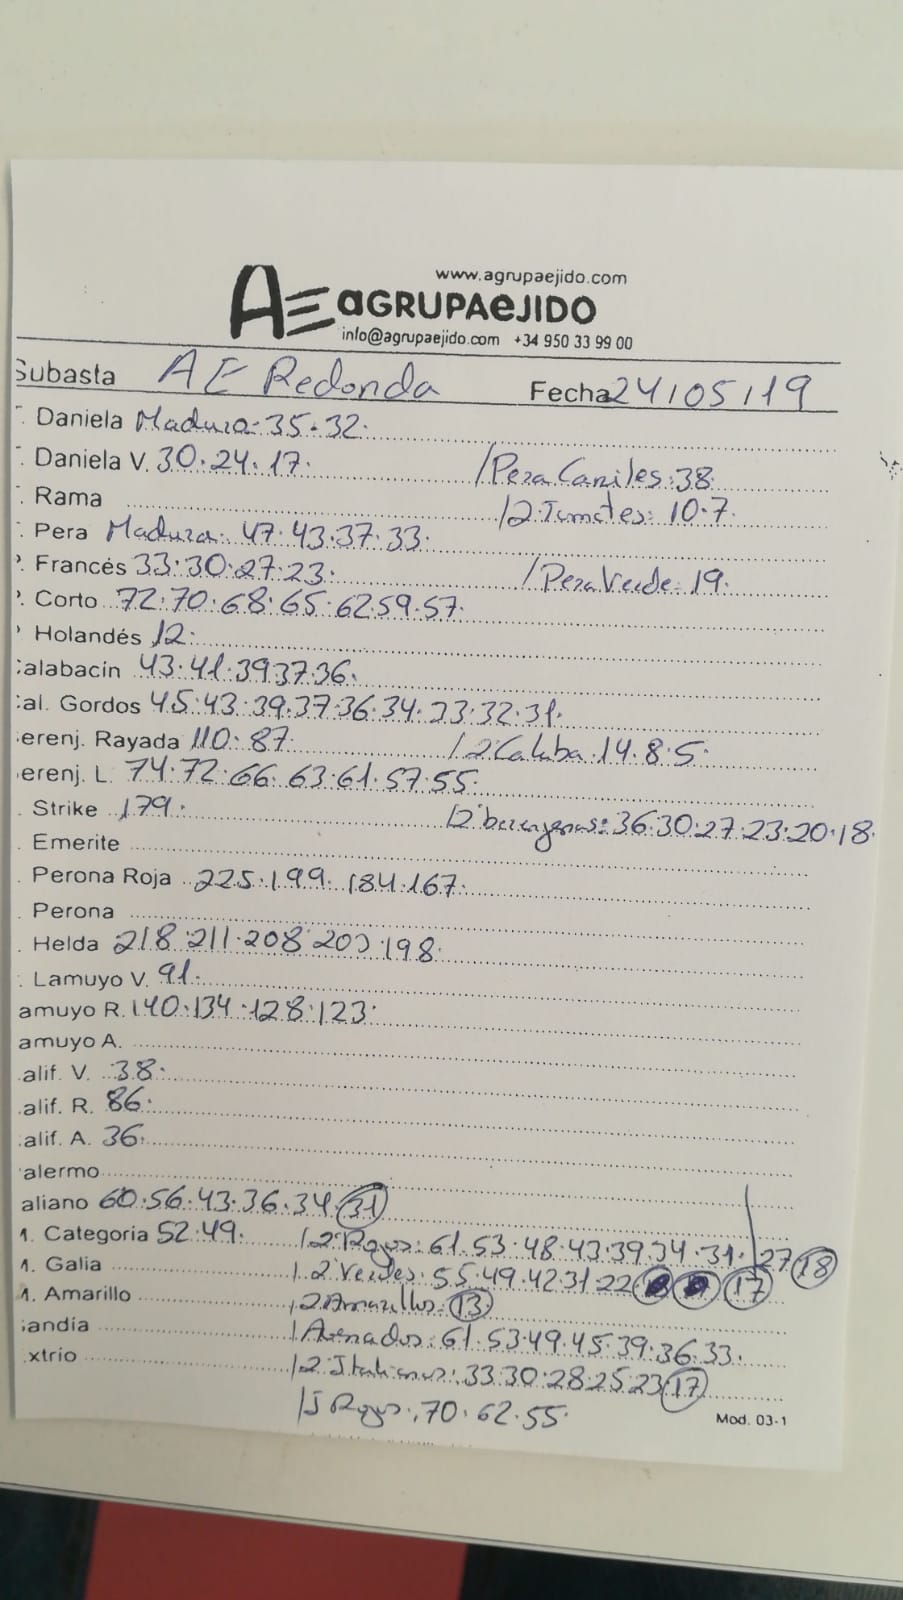 www.agrupaejido.com
AE aGRUPAeJIDO
info@agrupaejido.com +34 950 33 99 00
Subasta AE Redonda Fecha 24/05/19
. Daniela Madura. 35. 32.
. Daniela V. 30. 24. 17. / Pera Caniles: 38.
. Rama /2 Tomates: 10. 7.
. Pera Madura. 47. 43. 37. 33.
. Francés 33. 30. 27. 23. / Pera Verde. 19.
. Corto 72. 70. 68. 65. 62. 59. 57.
Holandés 12.
alabacín 43. 41. 39. 37. 36.
al. Gordos 45. 43. 39. 37. 36. 34. 33. 32. 31.
erenj. Rayada 110. 87. / 2 Calaba. 14. 8. 5.
erenj. L. 74. 72. 66. 63. 61. 57. 55.
. Strike 179. /2 berenjenas: 36. 30. 27. 23. 20. 18.
. Emerite
. Perona Roja 225. 199. 184. 167.
. Perona
. Helda 218. 211. 208. 203. 198.
. Lamuyo V. 91.
amuyo R. 140. 134. 128. 123.
amuyo A.
alif. V. 38.
alif. R. 86.
alif. A. 36.
alermo
aliano 60. 56. 43. 36. 34. 31
1. Categoria 52. 49. /2 Rojos: 61. 53. 48. 43. 39. 34. 31. / 27 18
1. Galia /2 Verdes: 55. 49. 42. 31. 22 17
1. Amarillo /2 Amarillos: 13
andía / Asenados: 61. 53. 49. 45. 39. 36. 33.
xtrio /2 Italianos: 33. 30. 28. 25. 23 17
/J Rojos: 70. 62. 55.
Mod. 03-1